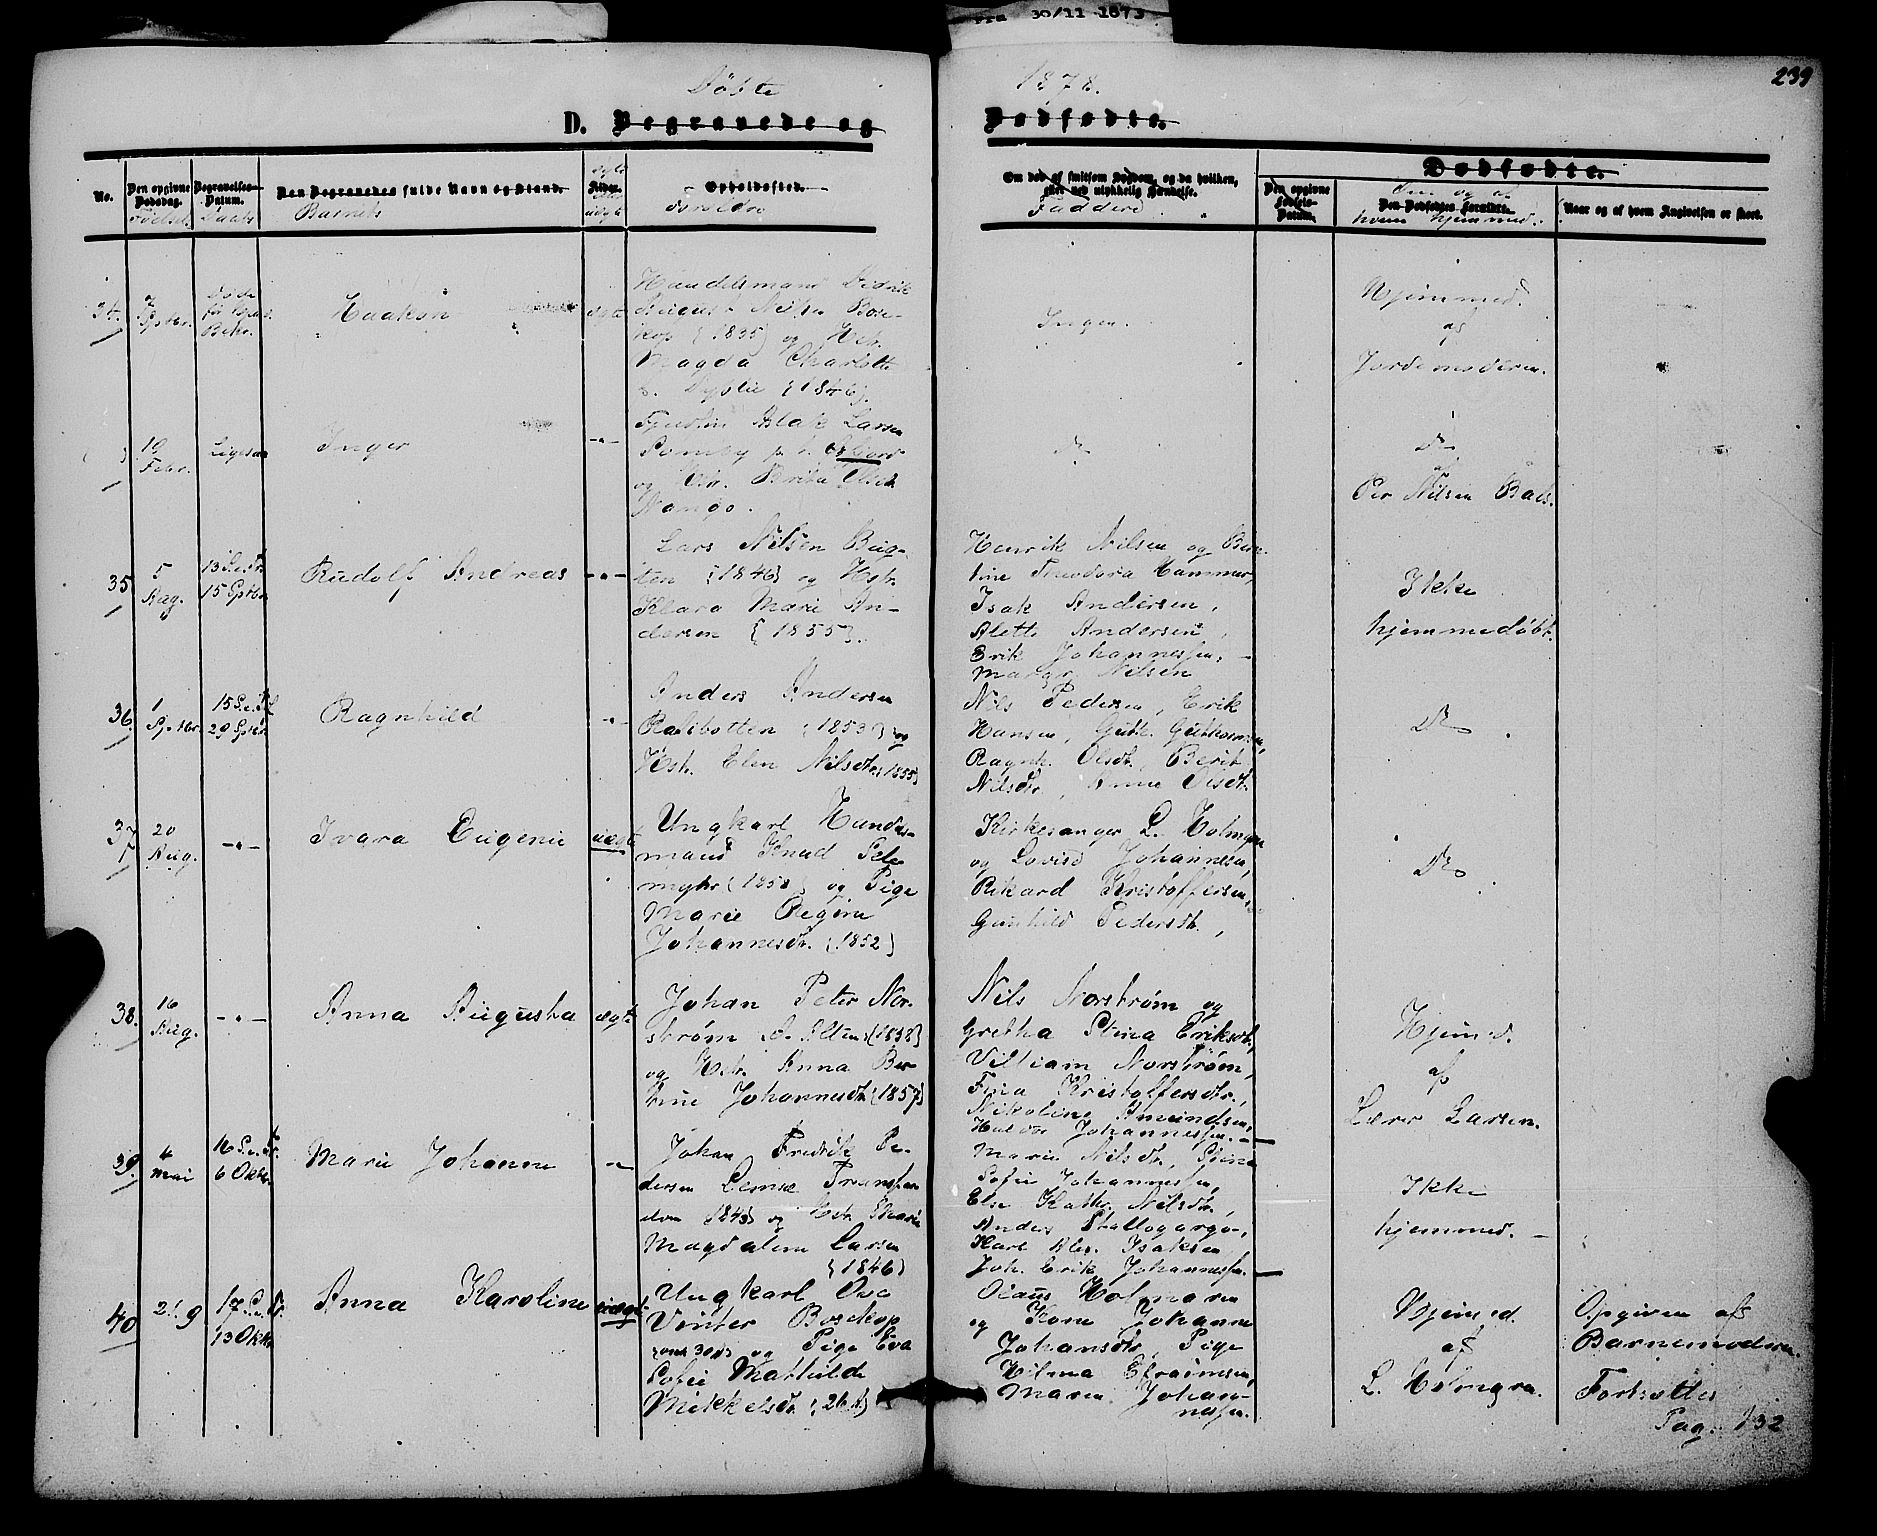 Fra 30/11 1873
Døbte
1878.
239
D. Begravede og
Dødfødte.
No.
Den opgivne Dødsdag.
Fødsel.
Begravelses-Datum.
Daabs
Den Begravedes fulde Navn og Stand.
Barnets
Alder.
Ægte eller uægte
Opholdssted.
Forældre
Om død af smitsom Sygdom, og da hvilken,
eller ved ulykkelig Hændelse.
Faddere
Dødfødte.
Den opgivne Fødsels-Datum.
Den Dødfødtes Forældre.
hvem hjemmed.
Naar og af hvem Angivelsen er skeet.
34.
7 Sptbr.
Døde før Daab. Bekr.
Haakon
ægte
Handelsmand Didrik
August Nilsen Bose-
kop {1835} og Hstr.
Magda Charlotte
{1846}.
Ingen.
Hjemmed.
af
Jordemoderen.
19 Febr.
Ligesaa
Inger
-"-
Aslak Larsen
og Hstr. Brita Olsdt.
Nango.
Do
Do
af
Per Nilsen Bals.
35
5 Aug.
13 S.e.Tr.
15 Sptbr.
Rudolf Andreas
-"-
Lars Nilsen Bug-
ten {1846} og Hstr.
Klara Marie An-
dersen {1855}.
Henrik Nilsen og Ber-
tine Theodora Hammer,
Isak Andersen,
Alette Andersen,
Erik Johannessen,
Margr. Nilsen
Ikke
hjemmedøbt.
36.
1 Sptbr.
15 S.e.Tr.
29 Sptbr.
Ragnhild
-"-
Anders Andersen
Rafsbotten {1853} og
Hstr. Elen Nilsdtr. {1855}
Nils Pedersen, Erik
Hansen, Gutt. Guttormsen,
Ragnh. Olsdt., Berit
Nilsdtr., Anne Olsdt.
Do
37
20 Aug.
-"-
Ivara Eugenie
uægte
Ungkarl Handels-
mand Knud Peter
myhr {1858} og Pige
Marie Regine
Johannesdt. {1852}
Kirkesanger L. Holmgren
og Lovise Johannesen,
Rikard Kristoffersen,
Gunhild Pedersdt.,
Do
38.
16 Aug.
-"-
Anna Augusta
ægte
Johan Peter Nor-
strøm S. Alten {1838}
og Hstr. Anna Ber-
trine Johannesdt. {1857}
Nils Norstrøm og
Gretha Stina Eriksdt.,
Villiam Norstrøm,
Fina Kristoffersdtr.,
Nikoline Amundsen,
Halvor Johannessen. —
Hjemmd.
af
Lærer Larsen.
39.
4 Mai
16 S.e.Tr.
6 Oktbr.
Marie Johanne
-"-
Johan Fredrik Pe-
dersen Lemse Transfar
elven {1843} og Hstr. Maria
Magdalena Larsen
{1846}
Maria Nilsdt., Stina
Sofie Johannessen,
Else Kathr. Nilsdtr.,
Anders Stallogargo,
Karl Alex. Isaksen
Joh. Erik Johannessen. —
Ikke
hjemmed. —
40
21/9
17 S.e.Tr.
13 Oktbr.
Anna Karoline
uægte
Ungkarl Ove
Vinter Bosekop
{omt. 30 A} og Pige Eva
Sofie Mathilde
Mikkelsdt. {26 A}
Olaus Holmgren
og Kone Johanne
Johansdtr., Pige
Hilma Efraimsen,
Maren Johan-
nessen.
Hjemmd.
af
L. Holmgren.
Opgiven af
Barnemoderen.
Fortsættes
Pag. 132